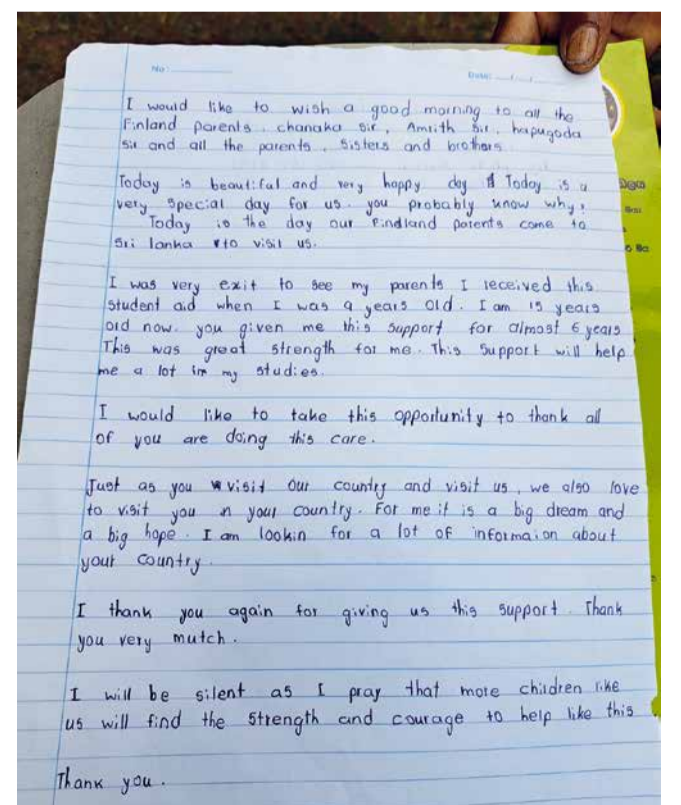 No: Date: / /
I would like to wish a good morning to all the
Finland parents. chanaka sir, Amrith sir, hapugoda
sir and all the parents, sisters and brothers
Today is beautiful and very happy day Today is a
very special day for us. you probably know why,
Today is the day our Findland parents come to
Sri lanka to visit us.
I was very exit to see my parents I received this
student aid when I was 9 years old. I am 15 years
old now. you given me this support for almost 6 years
This was great strength for me. This Support will help
me a lot in my studies.
I would like to take this opportunity to thank all
of you are doing this care.
Just as you visit our country and visit us, we also love
to visit you n your country. For me it is a big dream and
a big hope. I am lookin for a lot of informaion about
your country.
I thank you again for giving us this support. Thank
you very mutch.
I will be silent as I pray that more children like
us will find the strength and courage to help like this
Thank you.